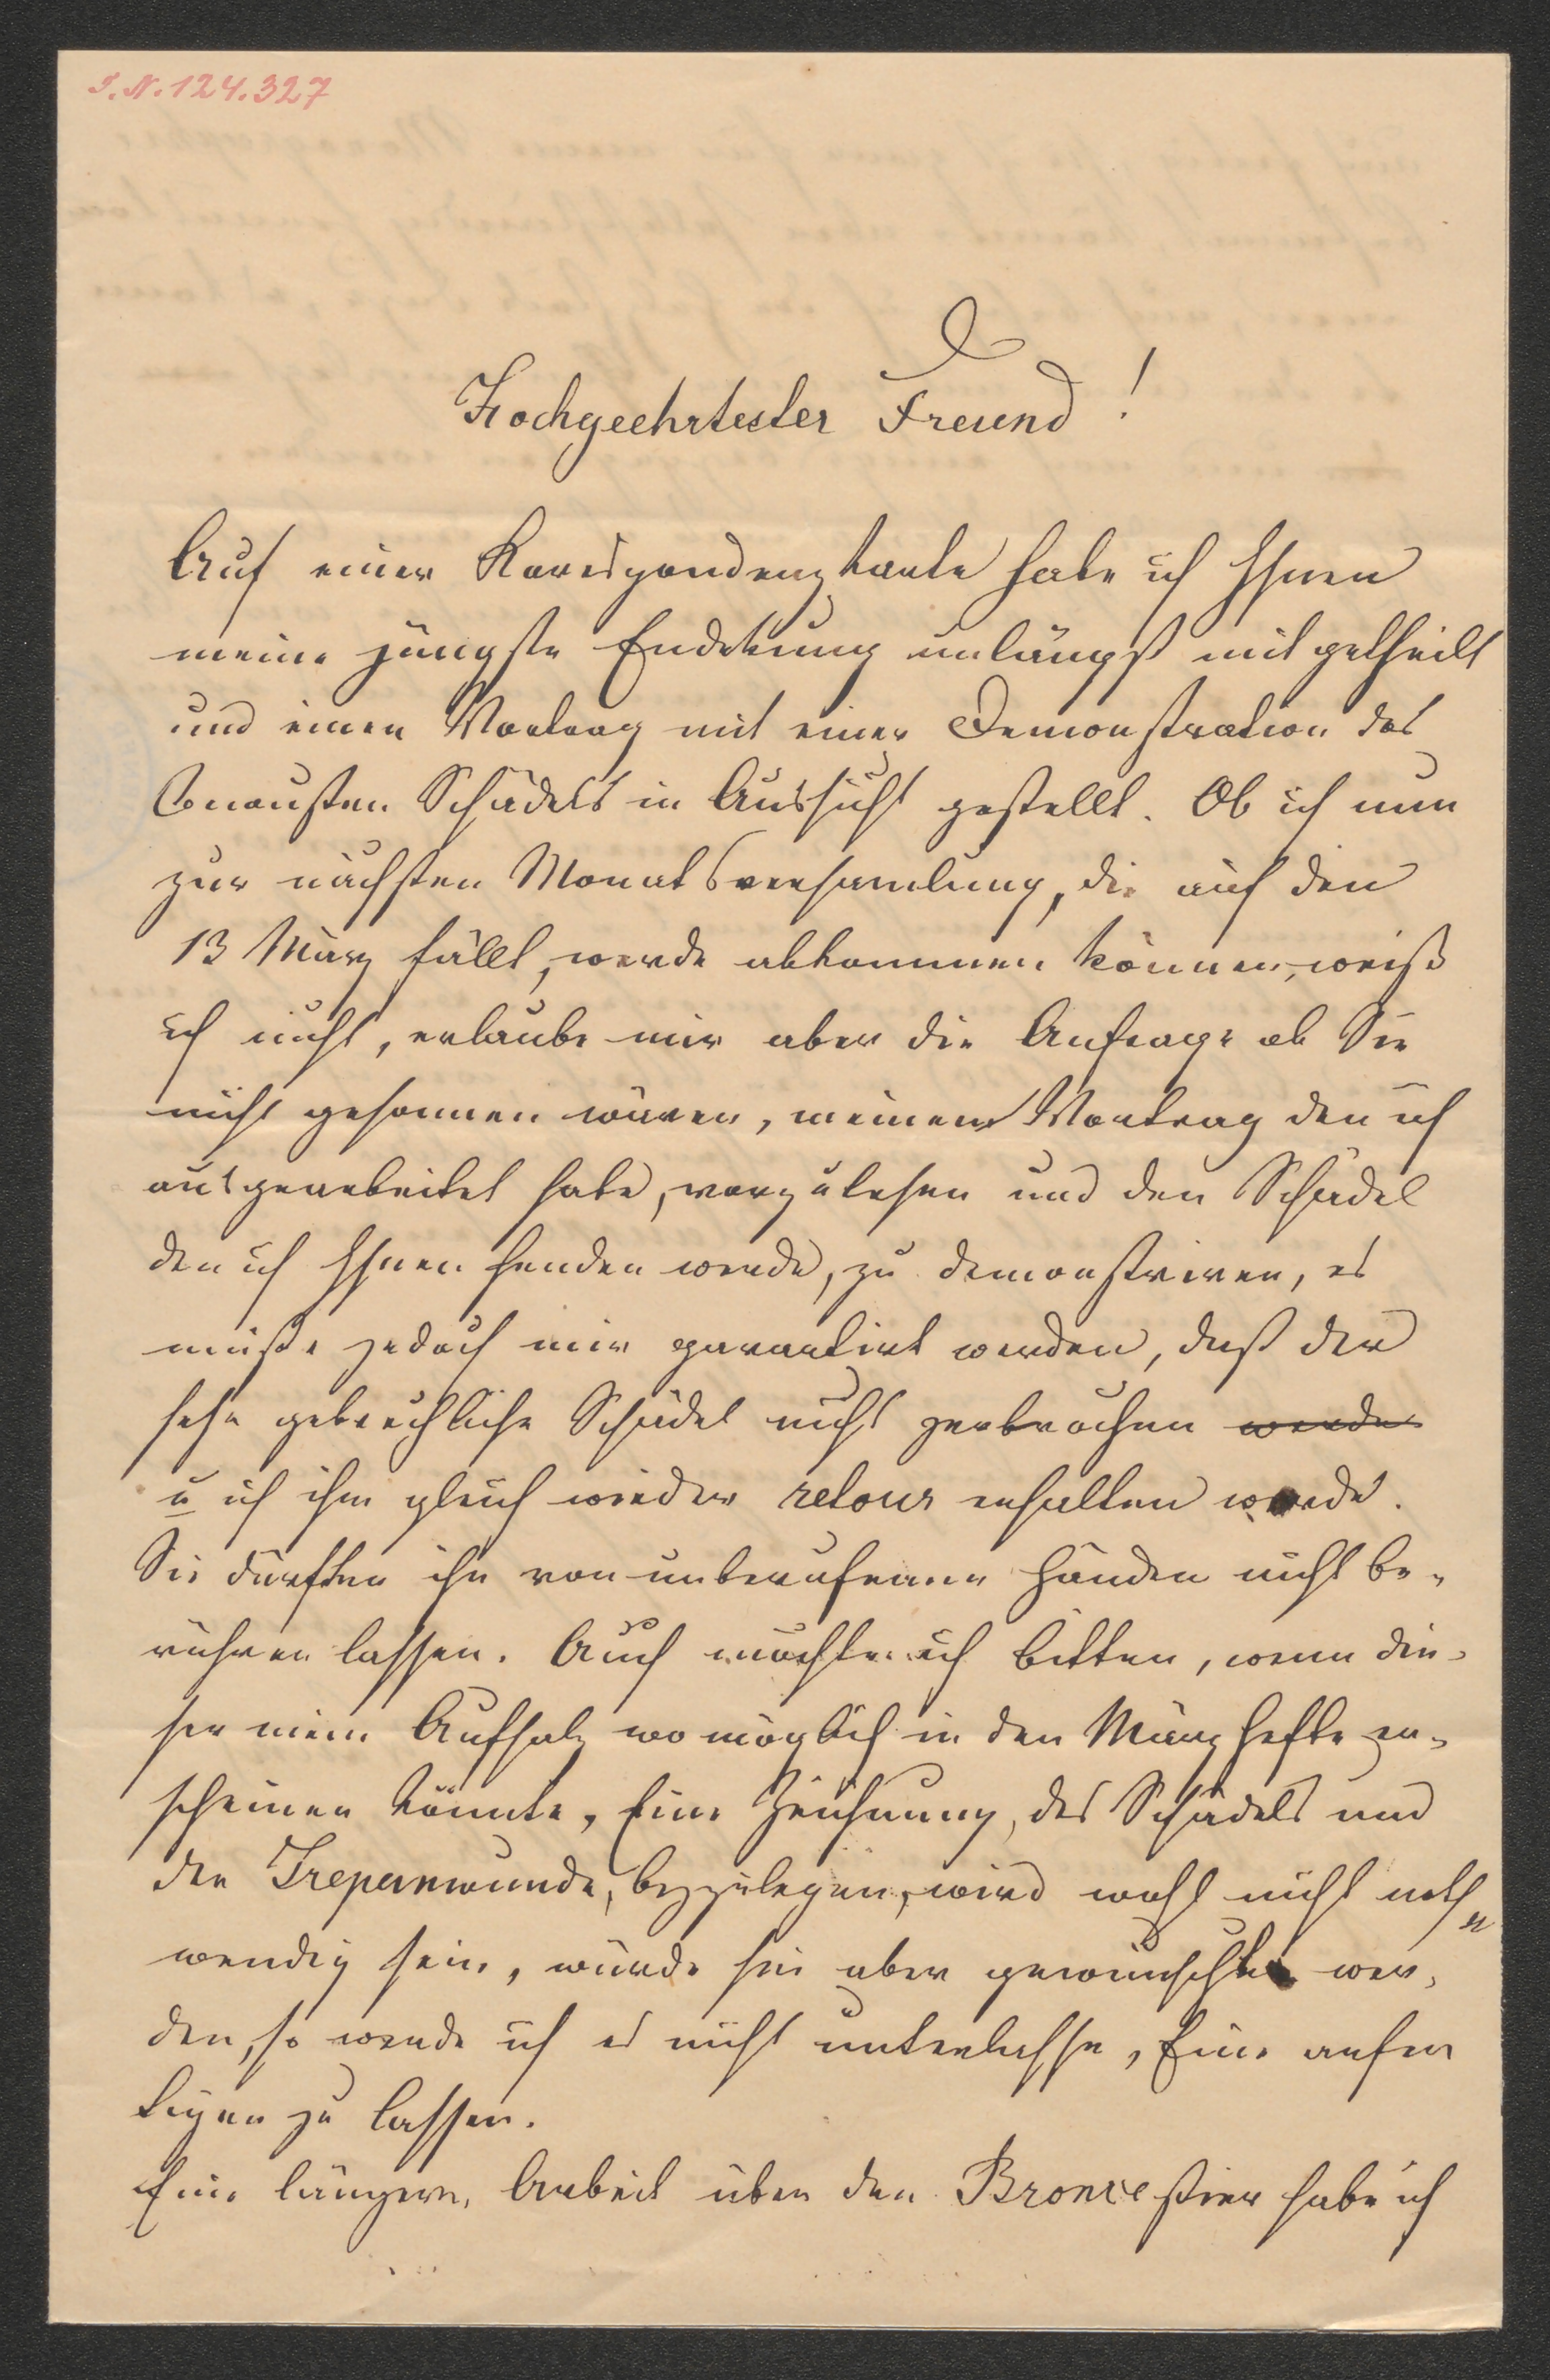 I. N. 124.327
Hochgeehrtester Freund!
Auf einer Korrespondenzkarte habe ich Ihnen
meine jüngste Endekung unlängst mitgetheilt
und einen Vortrag mit einer Demonstration des
Schädels in Aussicht gestellt. Ob ich nun
zur nächsten Monatsversamlung, die auf den
13 März fällt, werde abkommen können, weiß
ich nicht, erlaube mir aber die Anfrage ob Sie
nicht gesonnen wären, meinen Vortrag den ich
ausgearbeitet habe, vorzulesen und den Schädel
den ich Ihnen senden werde, zu demonstriren, es
müßte jedoch mir garantirt werden, daß der
sehr gebrechliche Schädel nicht zerbrochen werde
u ich ihn gleich wieder retour erhalten werde.
Sie dürften ihn von unberufenen Händen nicht be-
rühren lassen. Auch möchte ich bitten, wenn die-
ser mein Aufsatz womöglich in den Märzhefte er-
scheinen könnte, Eine Zeichnung, des Schädels und
der Trepanwunde, beyzulegen, wird wohl nicht noth-
wendig sein, würde sie aber gewünscht wer-
den, so werde ich es nicht unterlasse, Eine anfer
tigen zu lassen.
Eine längere Arbeit über den Broncestier habe ich